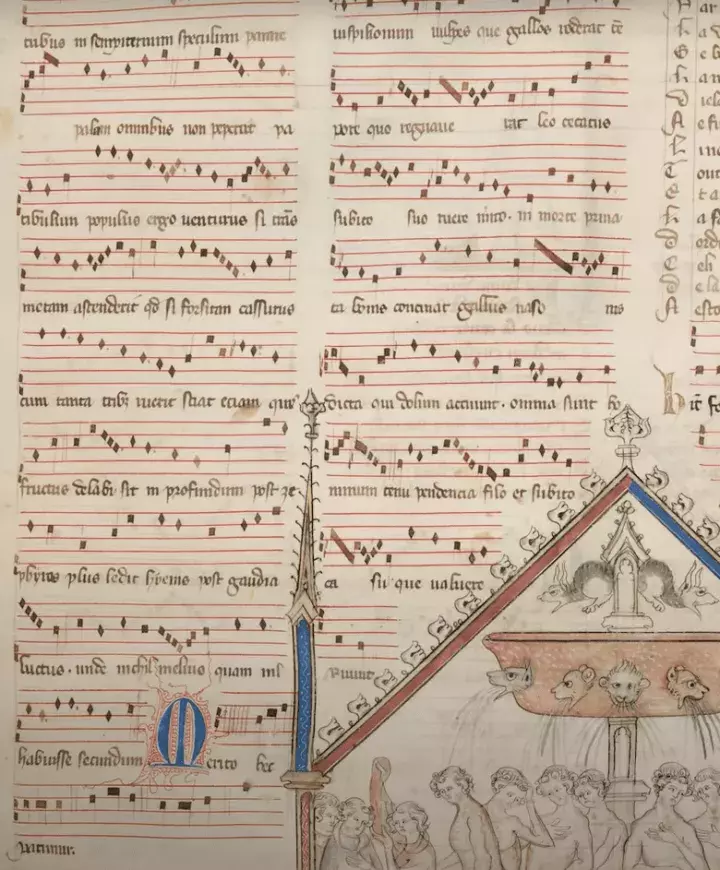 cubus in sempiternum speculum parare
palam omnibus non peperat pa
tibulum populus ergo venturus si trãs
metam ascenderit qđ si forsitan cassurus
cum tanta tribꝫ ruerit sciat eciam quis
fructus delabi sit in profundum post ze
phyros plus ledit hyems post gaudia
luctus . unde nichil melius quam nil
habuisse secundum Merito hec
patimur.
vispilionum vulpes que gallos roderat tẽ
pore quo regnaue rat leo cecatus
subito suo ruere in morte priua
ta bonis concinat gallus naso nis
dicta qui dolum acuunt . omnia sunt ho
minum tenui pendencia filo et subito
ca su que ualuere
Ruunt